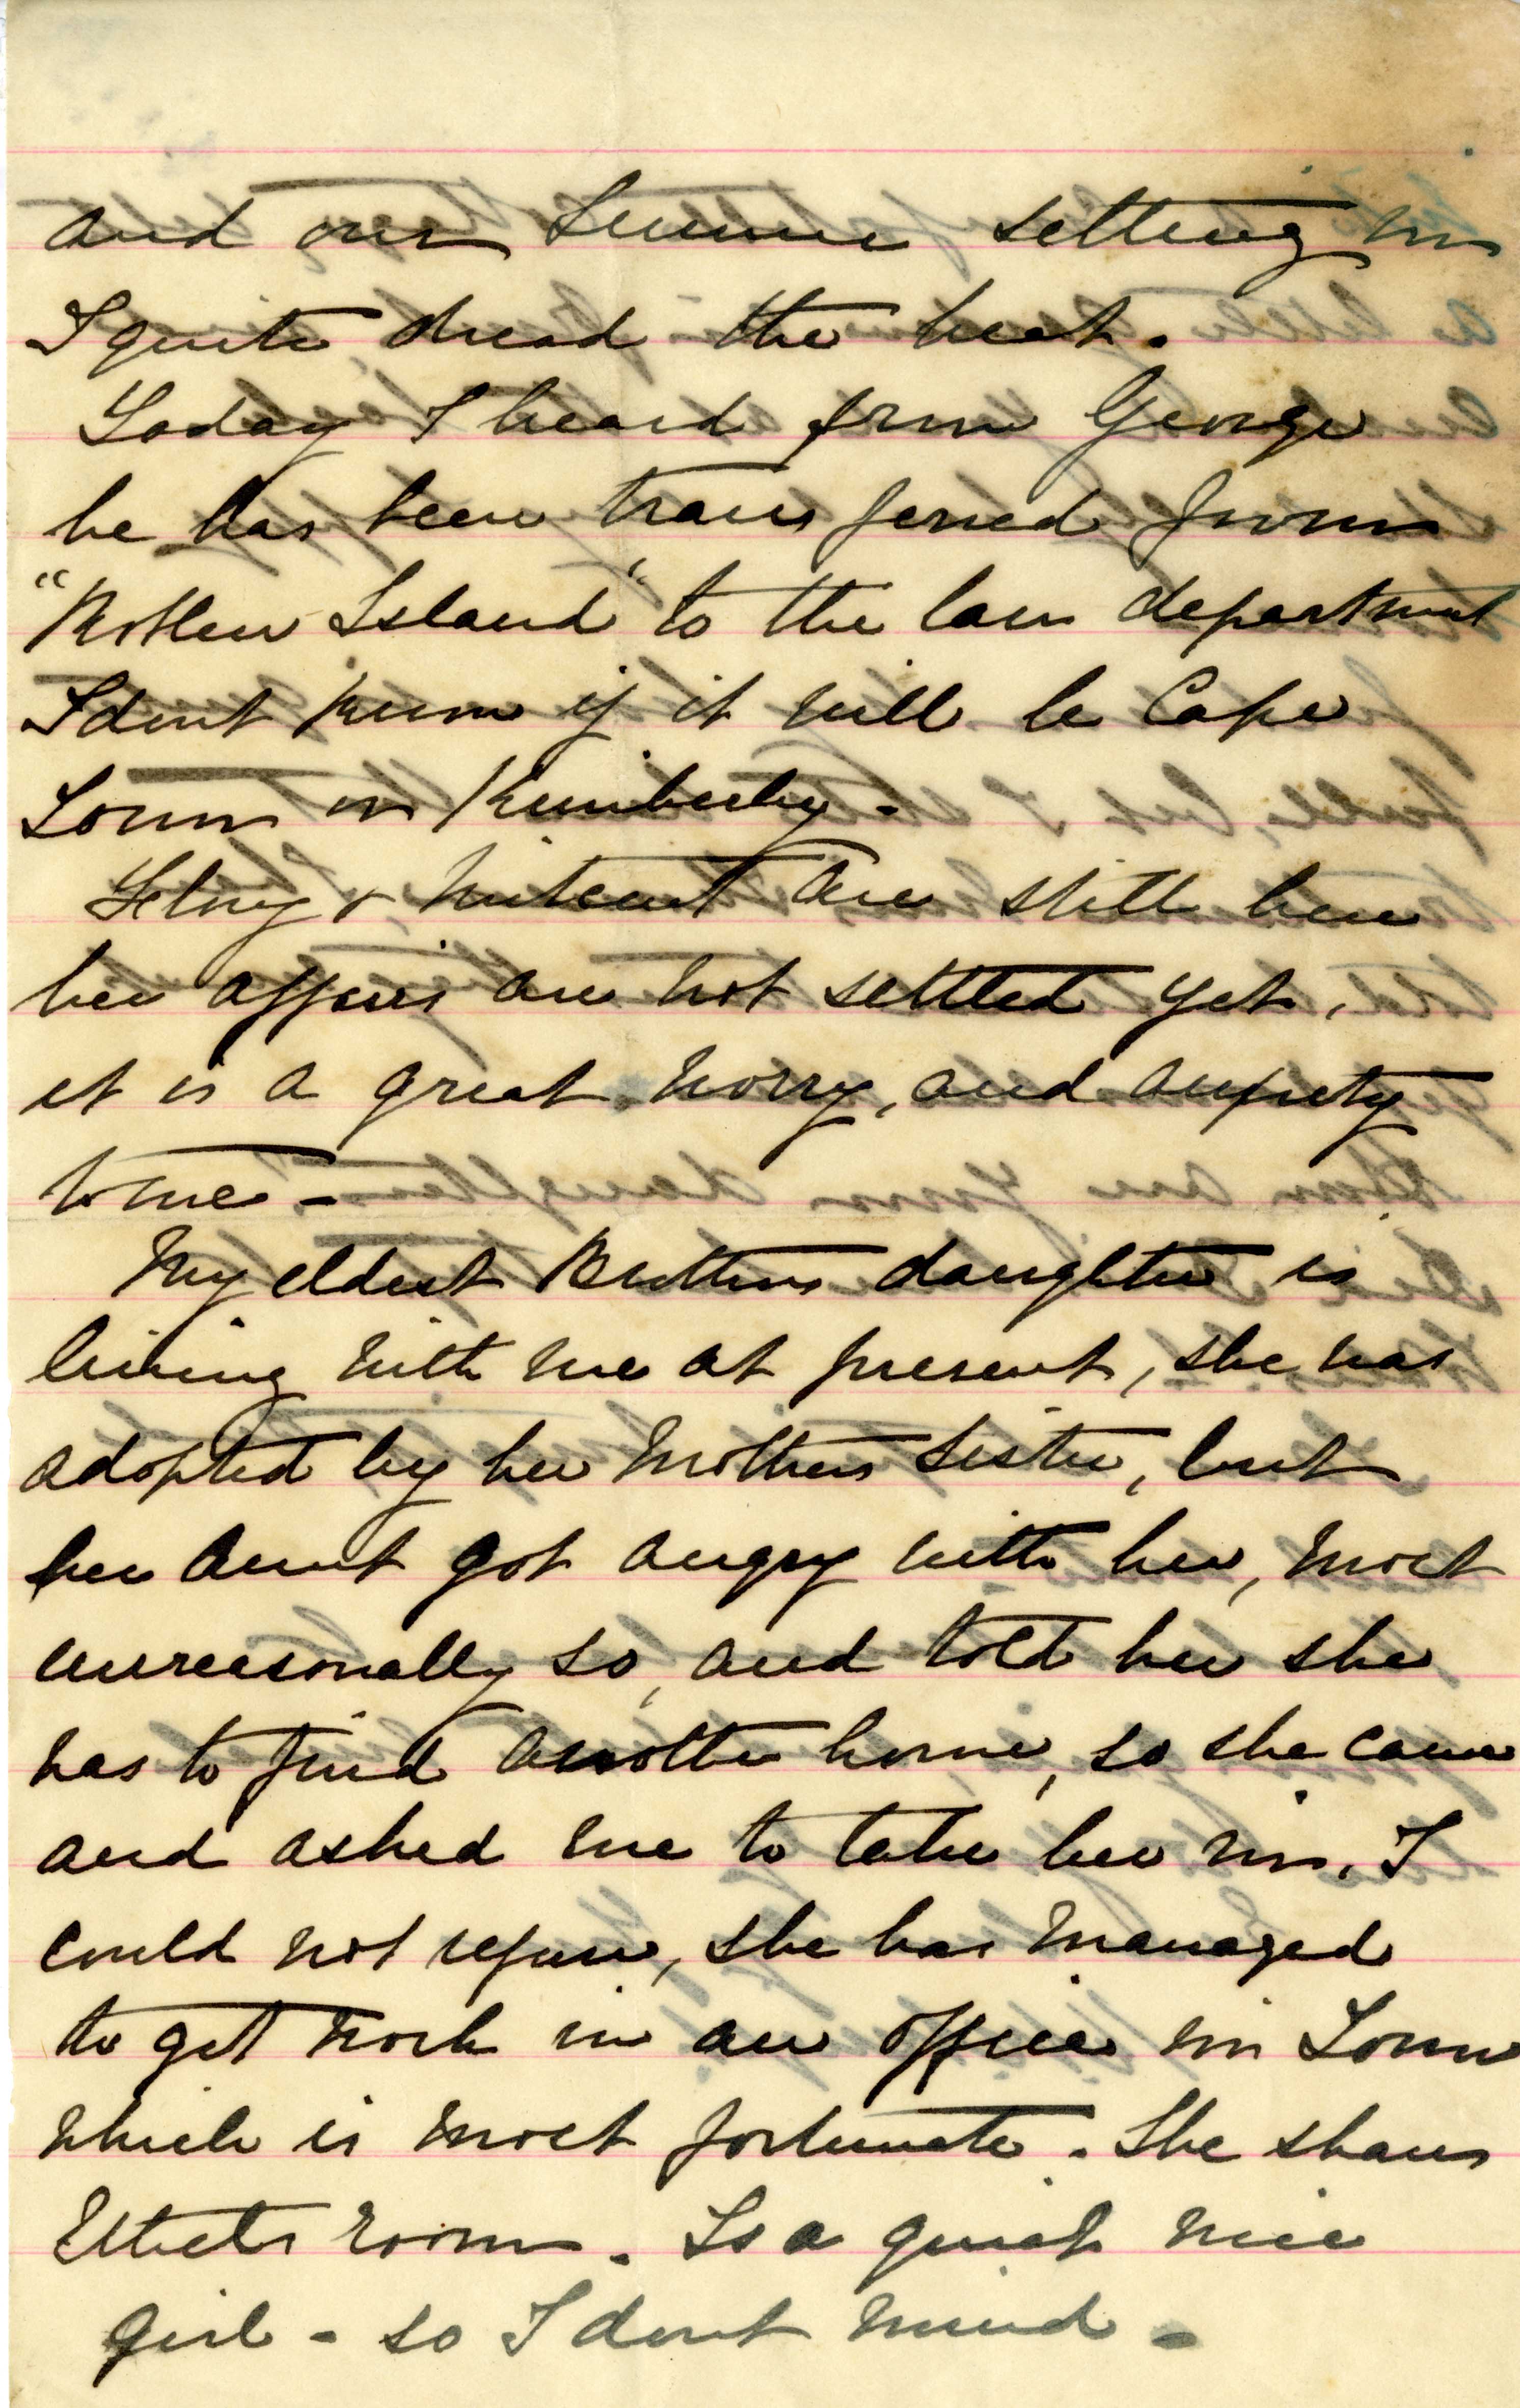 and our Summer setting in
I quite dread the heat.
Today I heard from George
he has been transferred from
"Robben Island" to the law department
I dont know if it will be Cape
Town or Kimberley.
& Vincent are still here
her affairs are not settled yet,
it is a great worry, and anxiety
to me -
My eldest Brothers daughter is
living with me at present, she was
adopted by her Mothers sister, but
her Aunt got angry with her, most
unreasonally so, and told her she
has to find another home, so she came
and asked me to take her in, I
could not refuse, she has managed
to get work in an office in Town
which is most fortunate. She shares
Ethels room. Is a quiet nice
girl - so I dont mind -